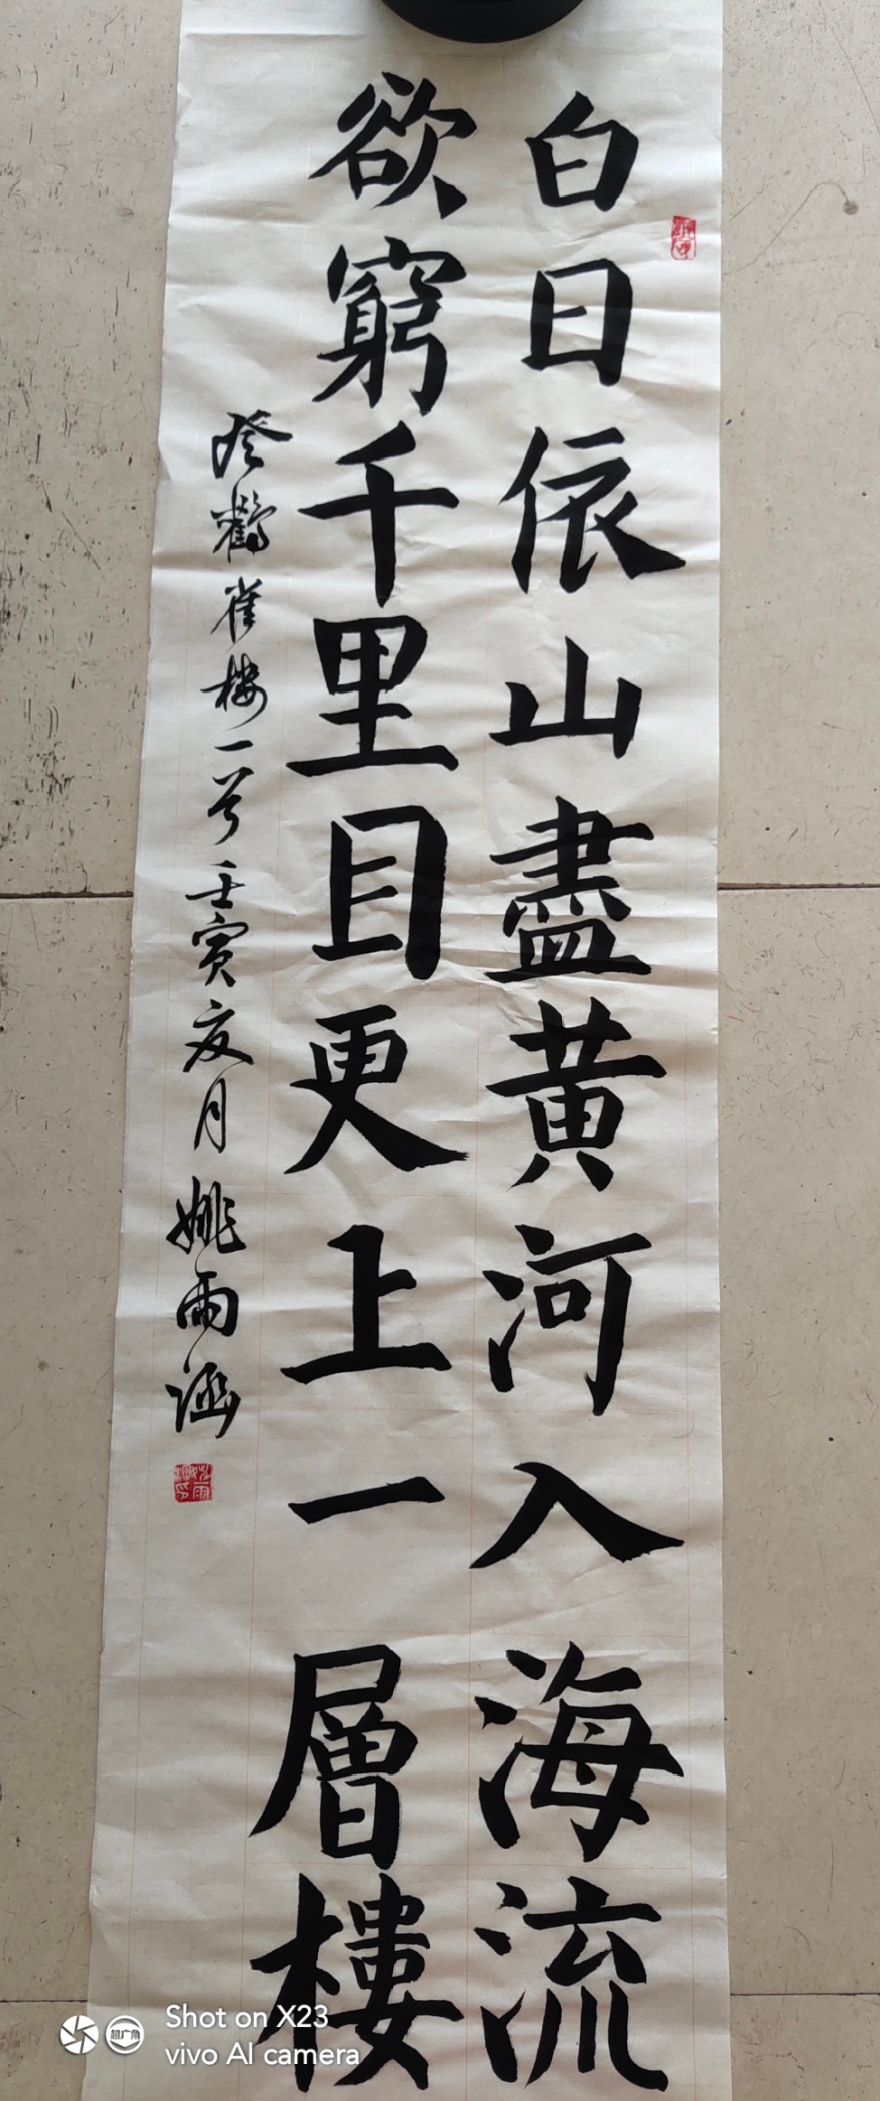 白日依山盡黄河入海流
欲窮千里目更上一層樓
登鸛雀楼一首壬寅夏月姚雨涵
Shot on X23
vivo AI camera
超广角